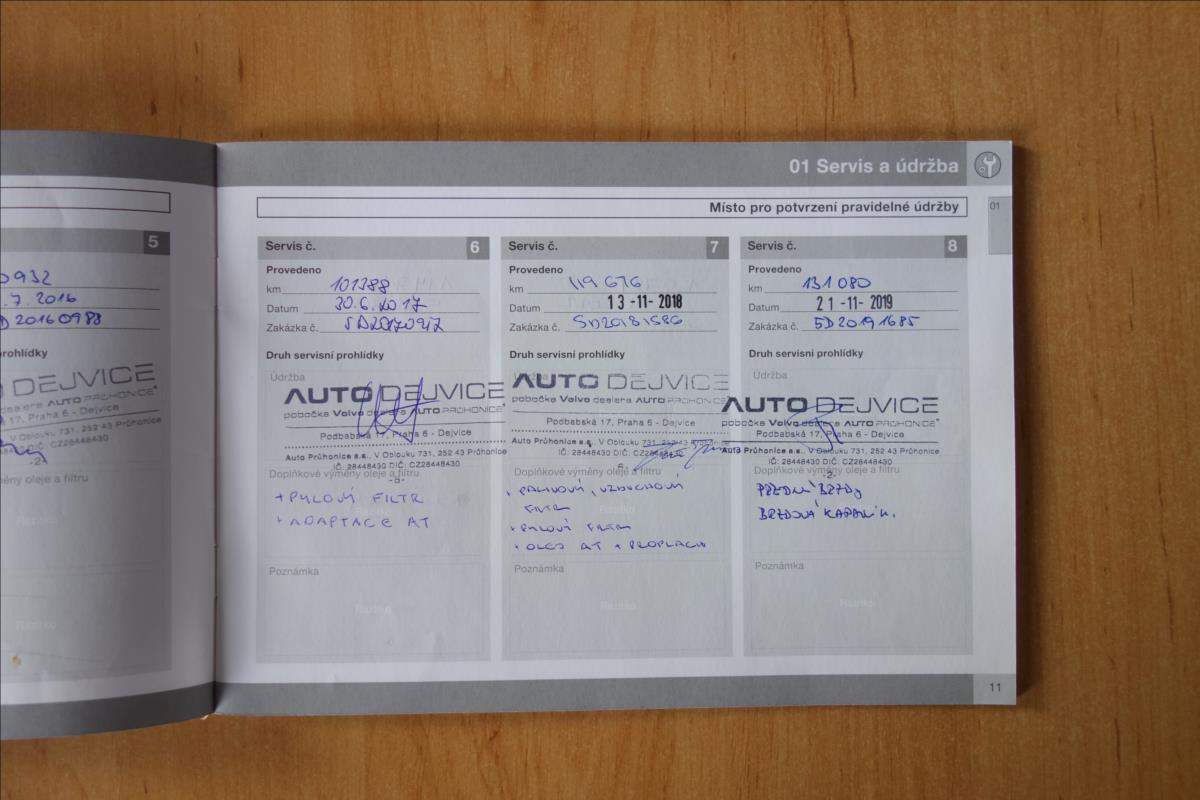 5
0932
.7. 2016
D 20160983
rohlídky
O DEJVICE
dealera AUTO PRŮHONICE
17, Praha 6 - Dejvice
V Oblouku 731, 252 43 Průhonice
DIČ: CZ28448430
-2-
ěny oleje a filtru
01 Servis a údržba
Místo pro potvrzení pravidelné údržby
01
Servis č. 6
Provedeno
km 101388
Datum 30.6.2017
Zakázka č. SD20170917
Druh servisní prohlídky
Údržba
AUTO DEJVICE
pobočka Volvo dealera AUTO PRŮHONICE
Podbabská 17, Praha 6 - Dejvice
Auto Průhonice a.s., V Oblouku 731, 252 43 Průhonice
IČ: 28448430 DIČ: CZ28448430
Doplňkové výměny oleje a filtru
+ PYLOVÝ FILTR
+ ADAPTACE AT
Poznámka
Servis č. 7
Provedeno
km 119 676
Datum 13 -11- 2018
Zakázka č. SD20181586
Druh servisní prohlídky
Údržba
AUTO DEJVICE
pobočka Volvo dealera AUTO PRŮHONICE
Podbabská 17, Praha 6 - Dejvice
Auto Průhonice a.s., V Oblouku 731, 252 43 Průhonice
IČ: 28448430 DIČ: CZ28448430
Doplňkové výměny oleje a filtru
+ PALIVOVÝ, VZDUCHOVÝ
FILTR
+ PYLOVÝ FILTR
+ OLEJ AT + PROPLACH
Poznámka
Servis č. 8
Provedeno
km 131 080
Datum 21 -11- 2019
Zakázka č. SD20191685
Druh servisní prohlídky
Údržba
AUTO DEJVICE
pobočka Volvo dealera AUTO PRŮHONICE
Podbabská 17, Praha 6 - Dejvice
Auto Průhonice a.s., V Oblouku 731, 252 43 Průhonice
IČ: 28448430 DIČ: CZ28448430
-2-
Doplňkové výměny oleje a filtru
PŘEDNÍ BRZDY
BRZDOVÁ KAPALIN.
Poznámka
11